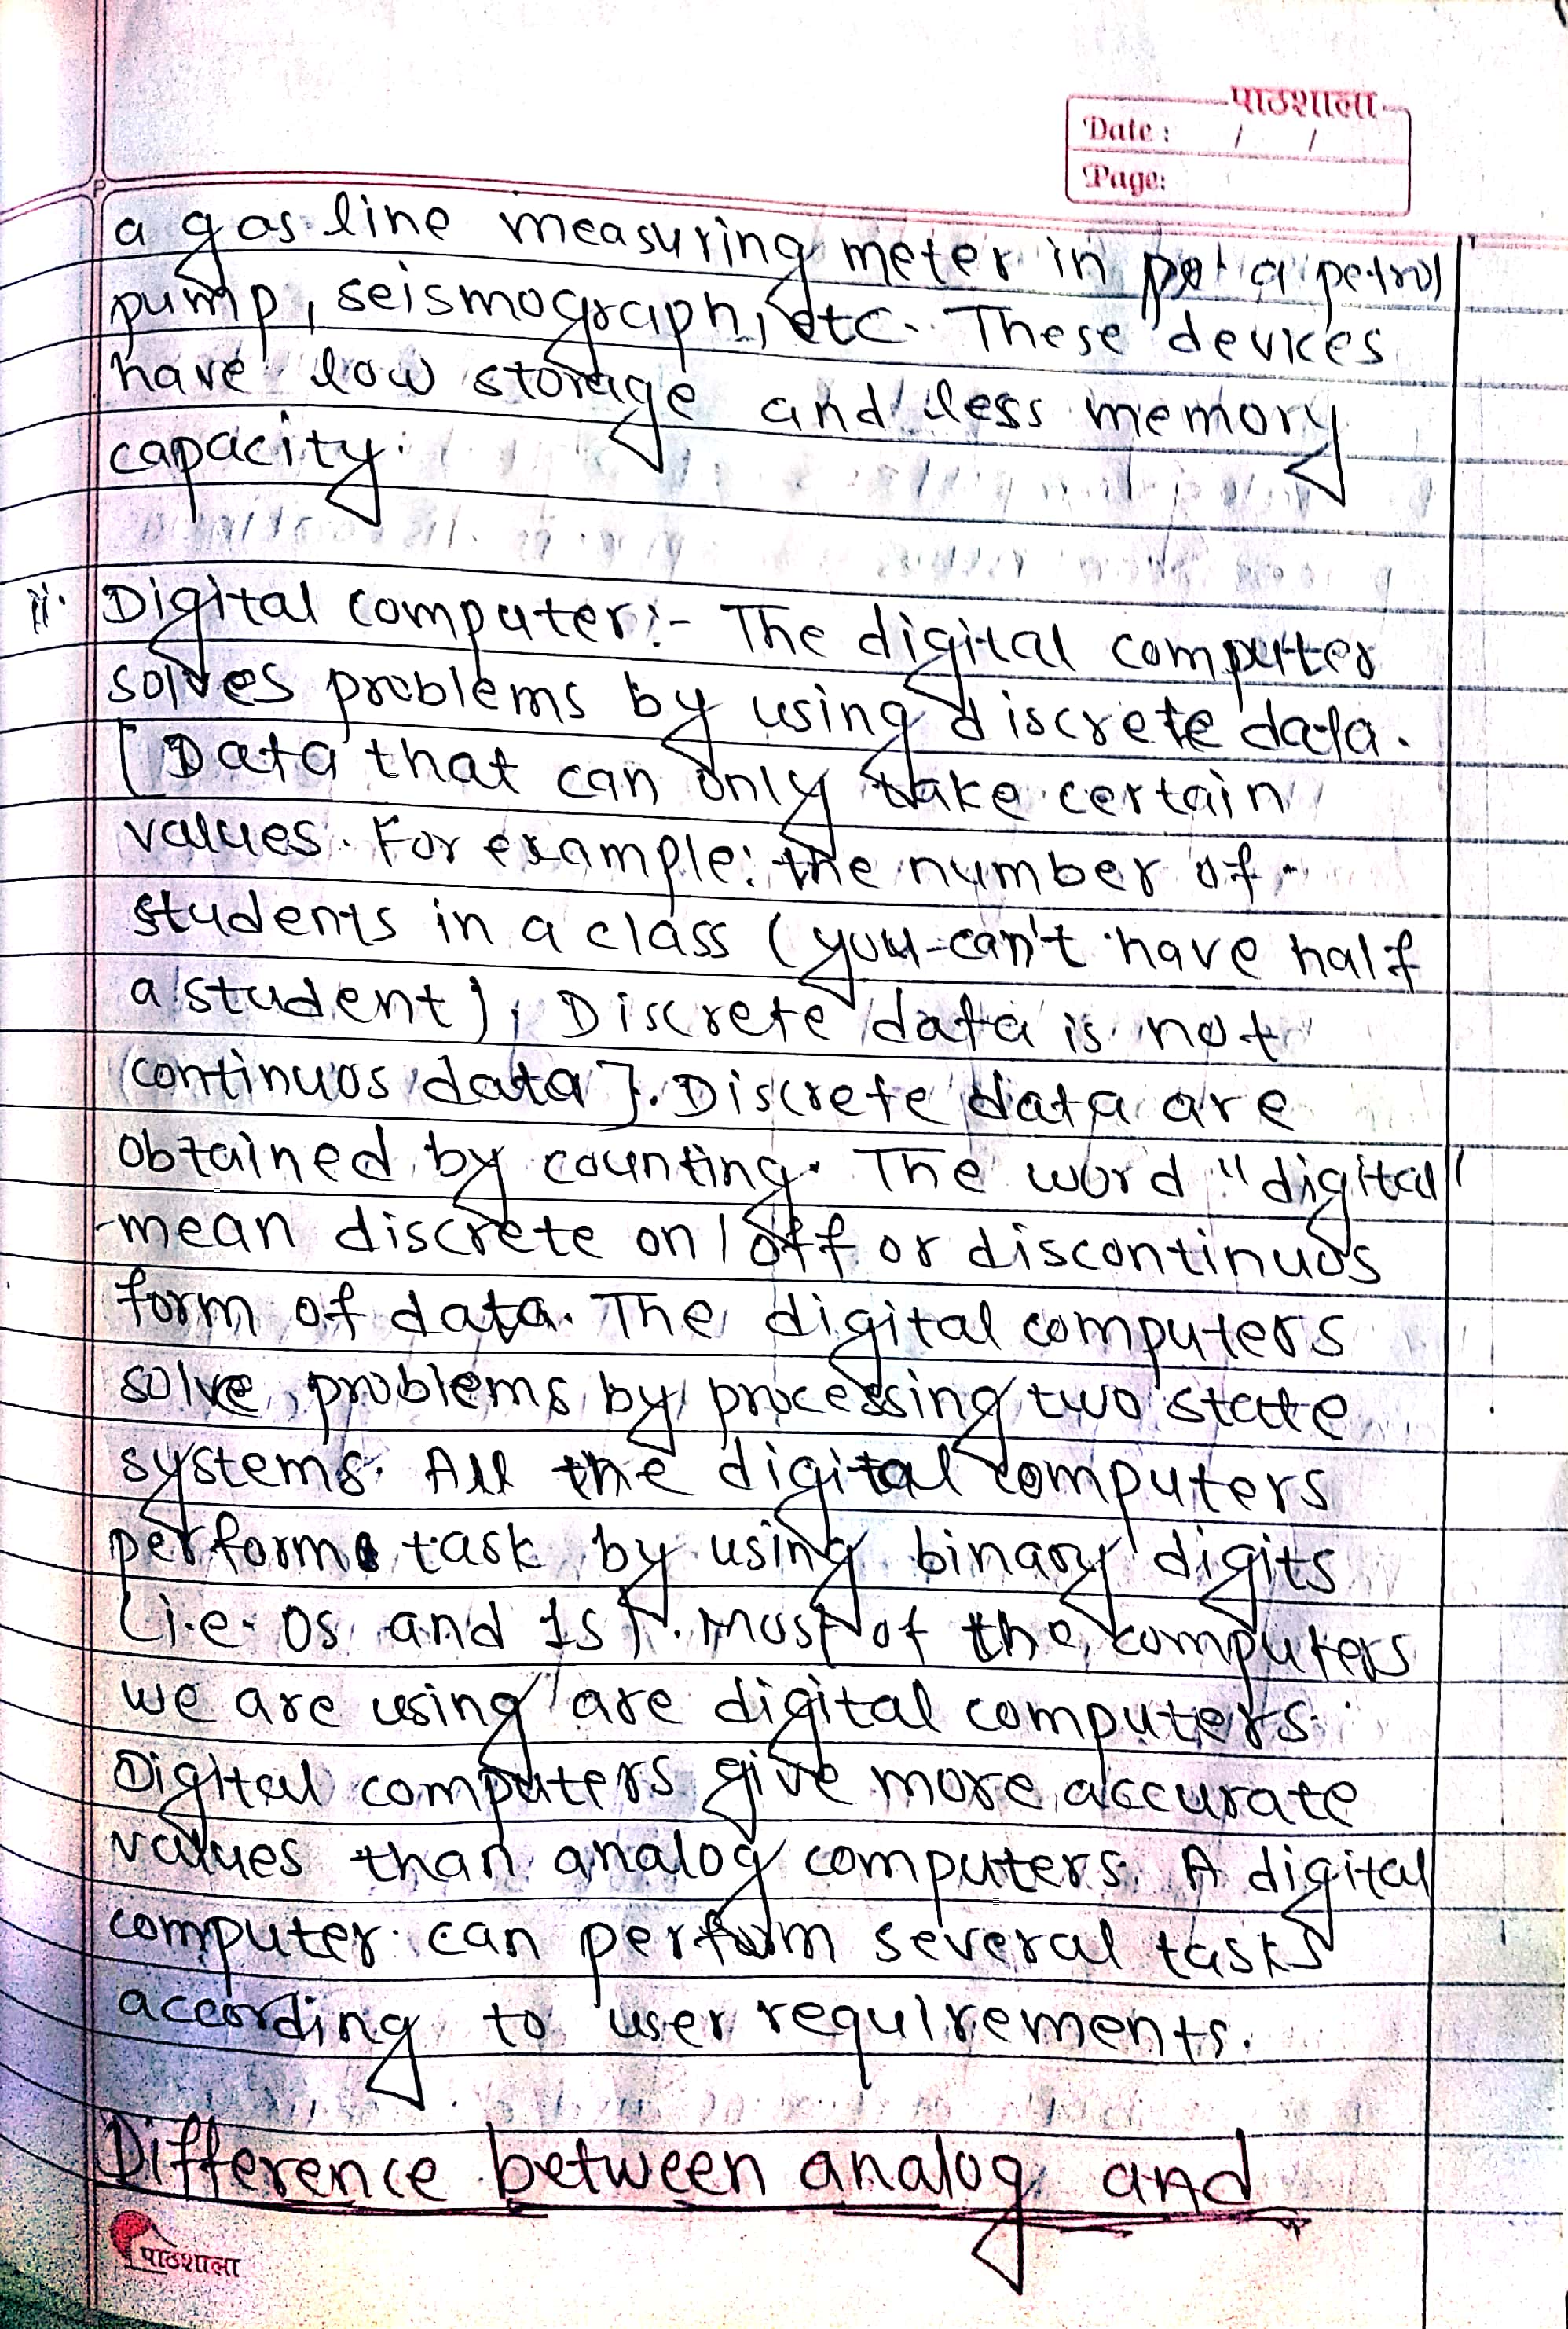 पाठशाला
Date : / /
Page:
a gasline measuring meter in pe a petrol
pump, seismograph, etc. These devices
have low storage and less memory
capacity.
ii. Digital computer:- The digital computer
solves problems by using discrete data.
[Data that can only take certain
values. For example: the number of
students in a class (you can't have half
a student), Discrete data is not
continuos data]. Discrete data are
obtained by counting. The word "digital"
mean discrete on/off or discontinuos
form of data. The digital computers
solve problems by processing two state
systems. All the digital computers
performs task by using binary digits
(i.e. 0s and 1s). Most of the computers
we are using are digital computers.
Digital computers give more accurate
values than analog computers. A digital
computer can perform several tasks
according to user requirements.
Difference between analog and
पाठशाला